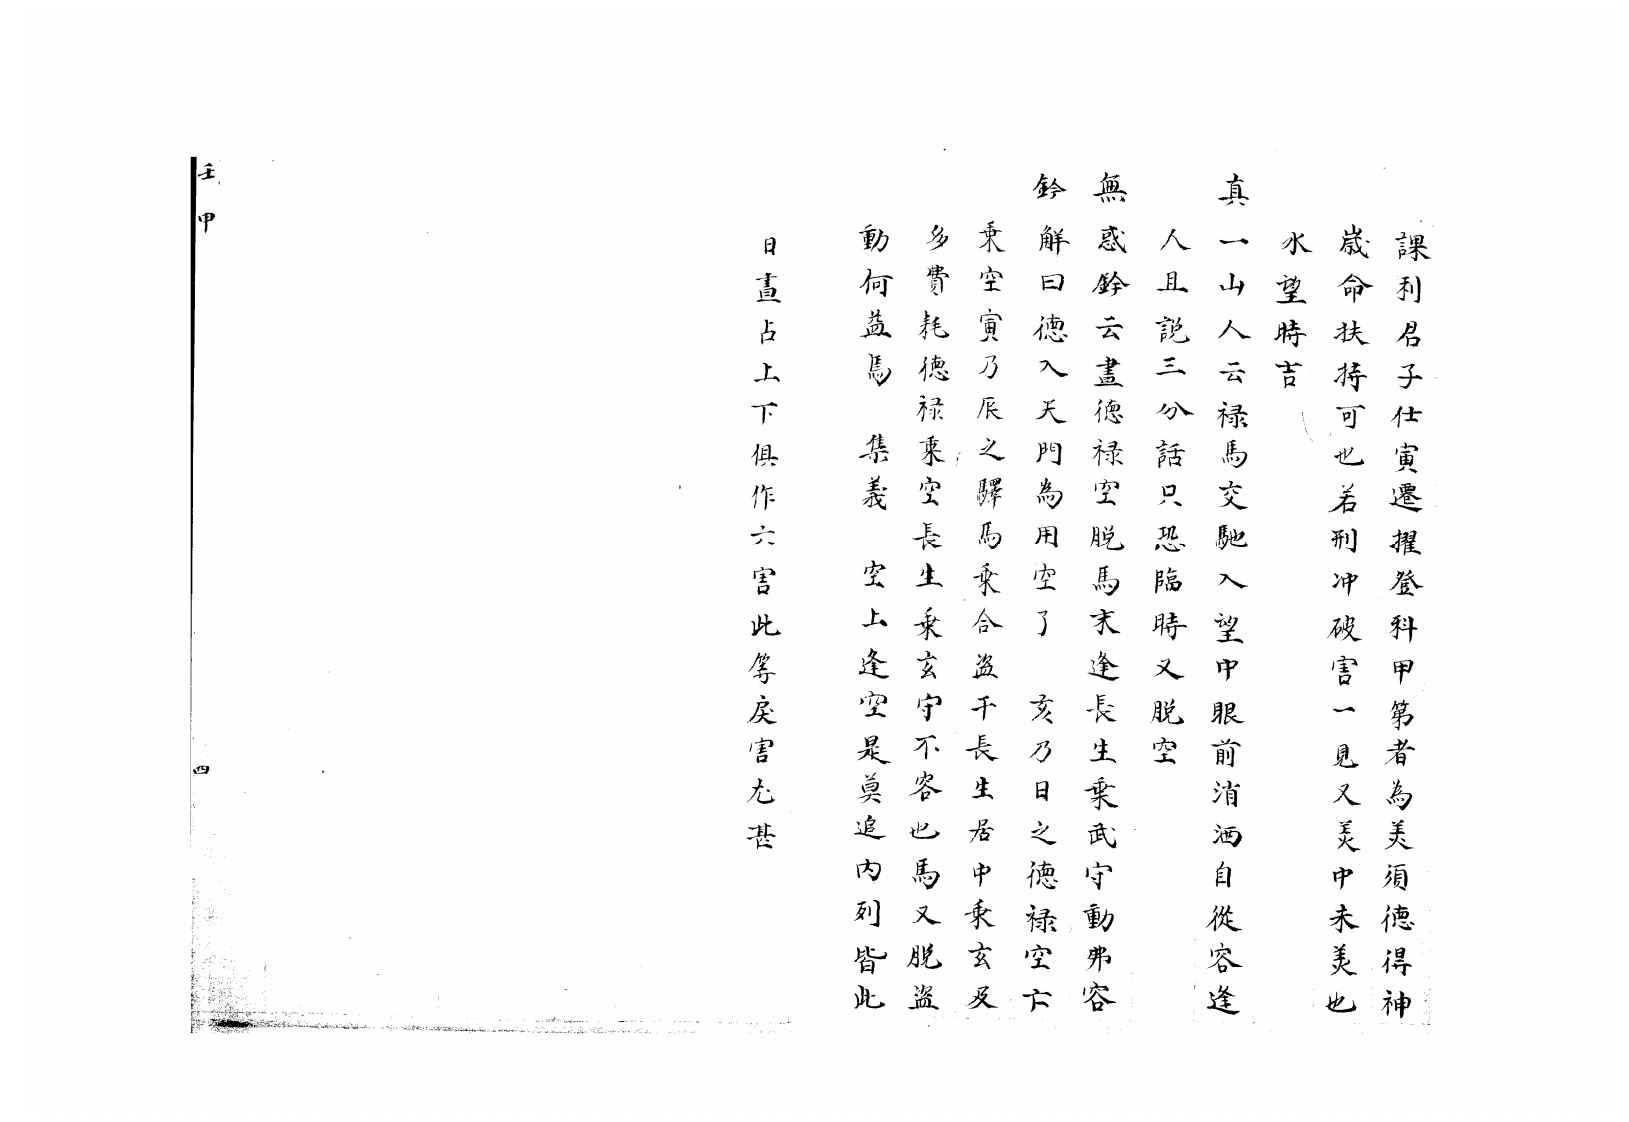 課利君子仕寅遷擢登科甲第者為美須德得神
歲命扶持可也若刑冲破害一見又美中未美也
水望時吉
真一山人云禄馬交馳入望中眼前消洒自從容逢
人且説三分話只恐臨時又脱空
無惑鈐云晝德禄空脱馬末逢長生乗武守動弗容
鈐解曰德入天門為用空了 亥乃日之德禄空亡
乗空寅乃辰之驛馬乗合盗干長生居中乗玄及
多費耗德禄乗空長生乗玄守不容也馬又脱盗
動何益焉 集義 空上逢空是莫追内列皆此
日晝占上下俱作六害此等戾害尤甚
壬甲 四